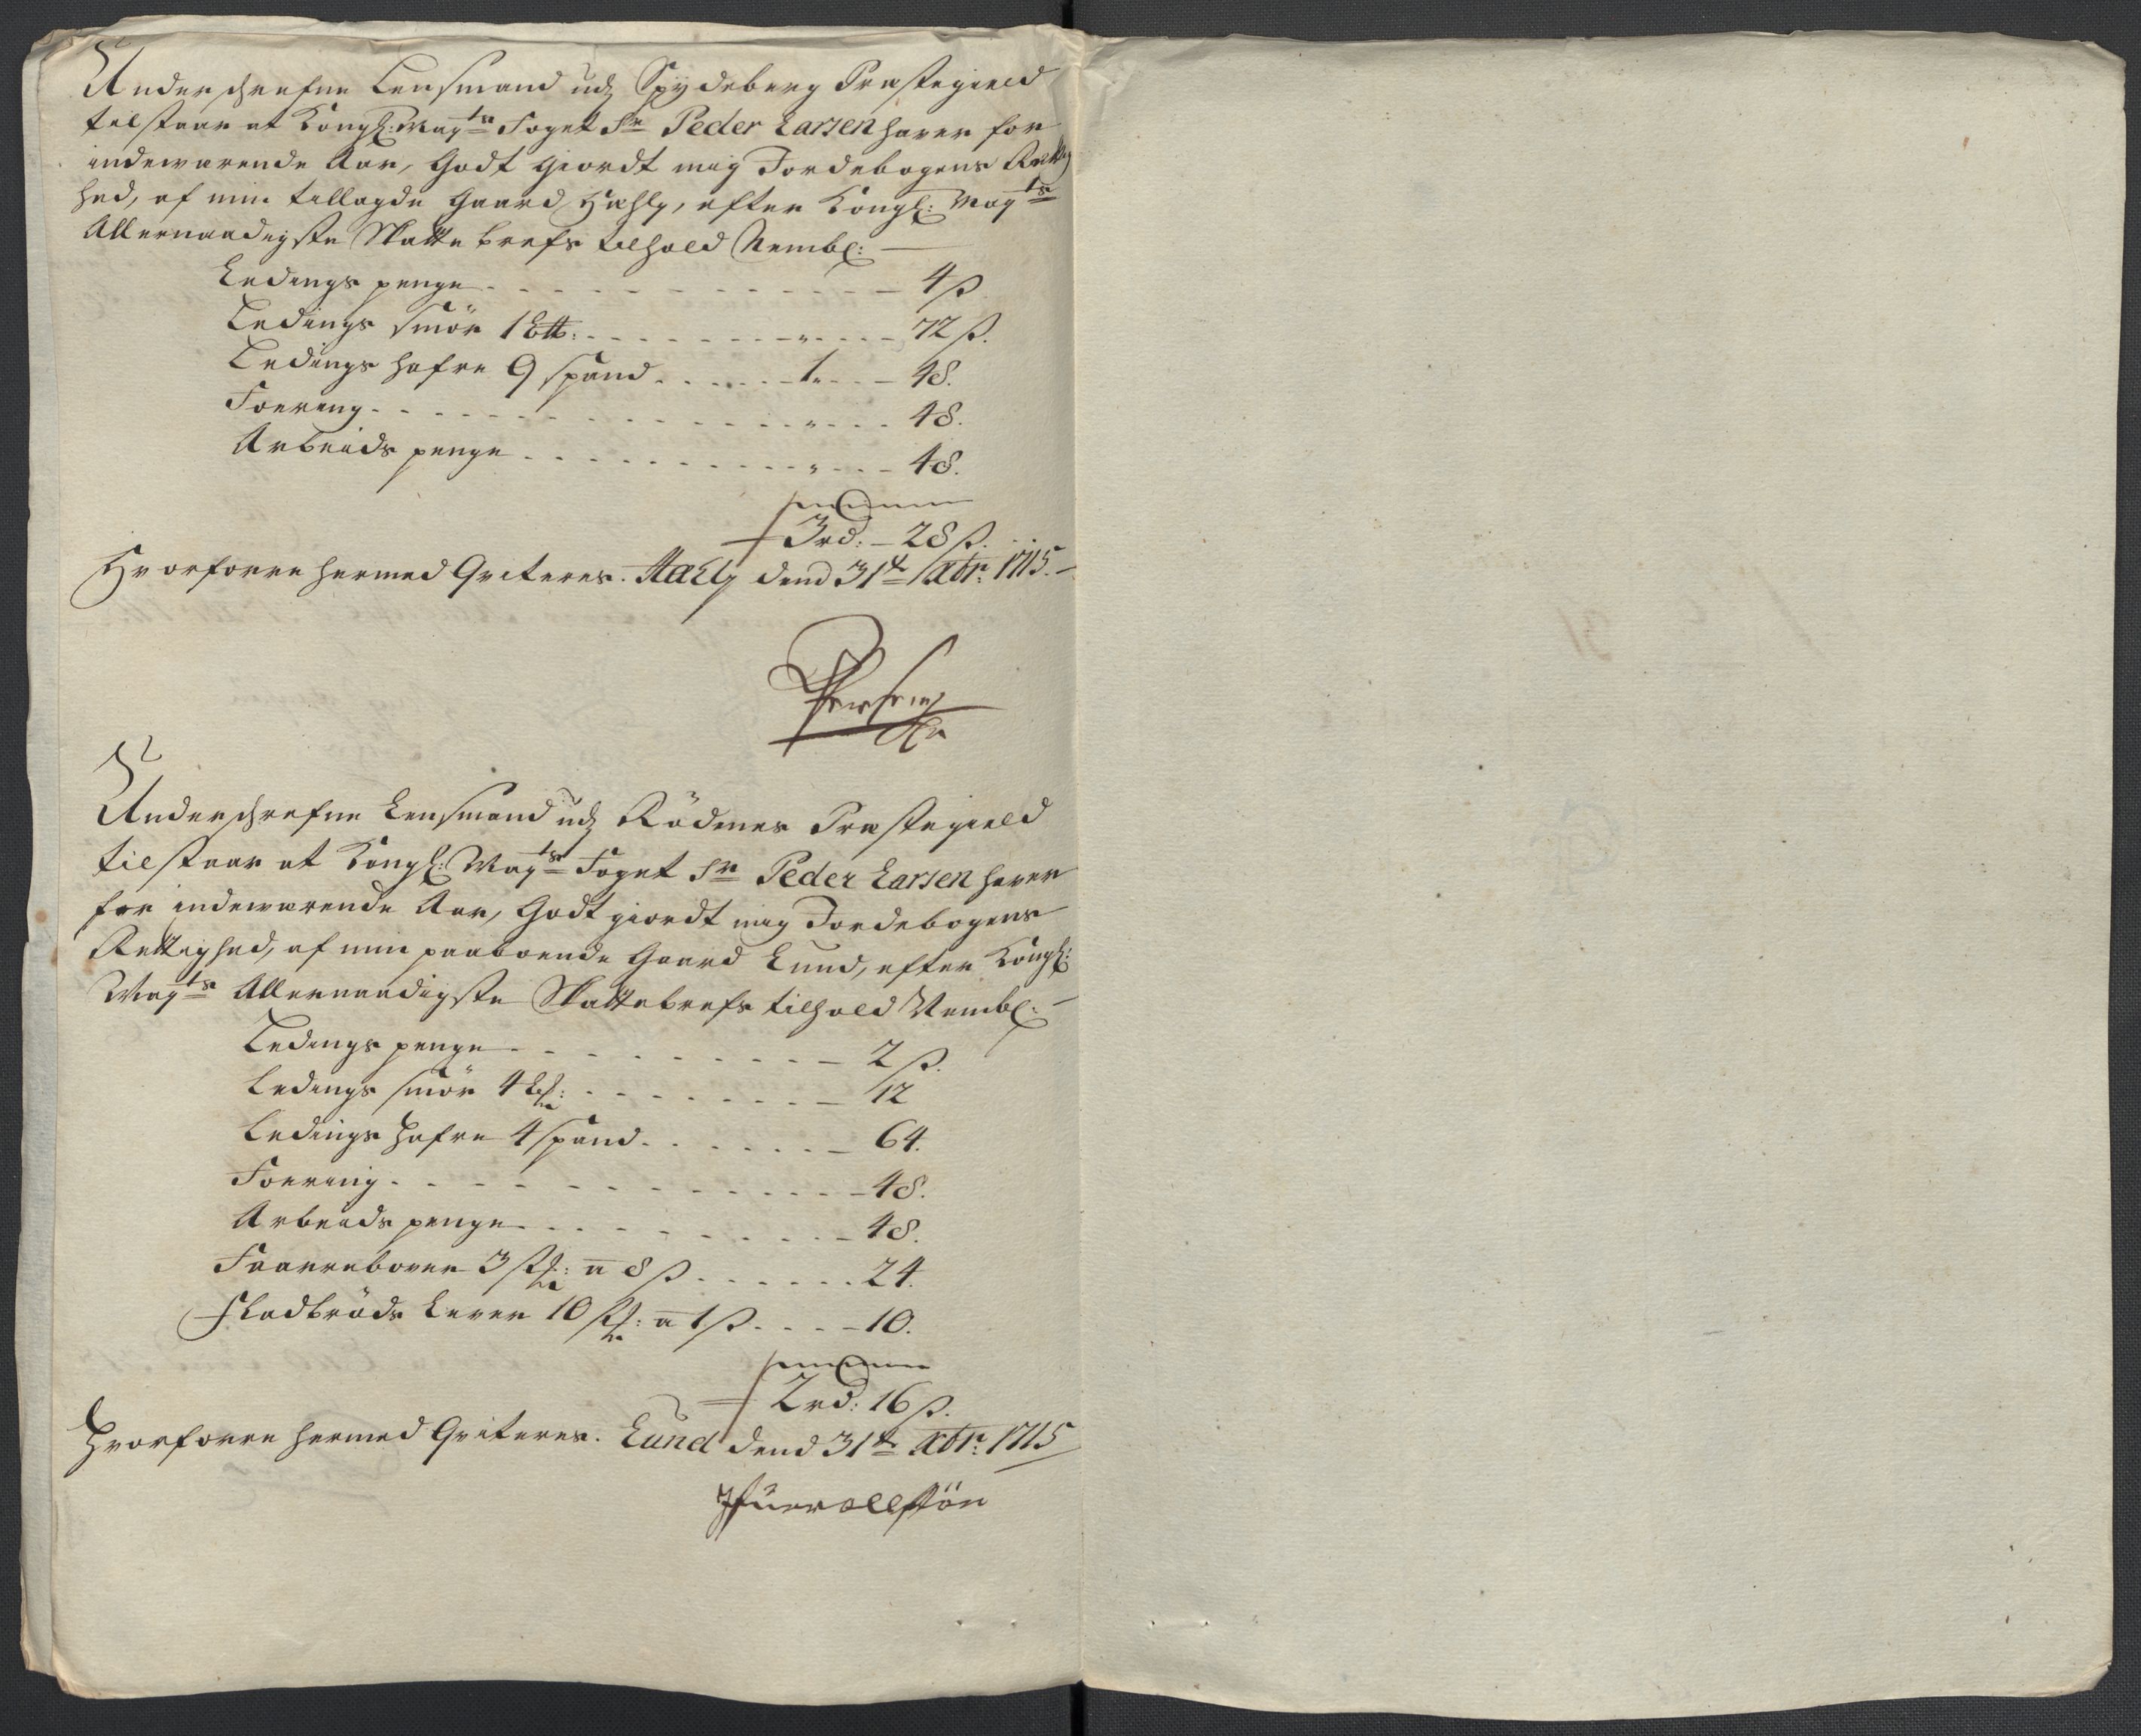 Underschrefne Lensmand udj Spydeberg Præstegield
tilstaar at Kongl: May:ts Foget Sr Peder Larsen haver for
indeværende Aar, Godt giordt mig Jordebogens Rettig
hed, af min tillagde Gaard Hæhly, efter Kongl: May:ts
Allernaadigste Skatte brefs tilhold Nembl:
Ledings penge - - - 4 ß
Ledings smör 1 Ltt: - - - „ - - 72 ß.
Ledings hafre 9 spand - - - 1 - - 48.
Foering - - - „ - - 48.
Arbeids penge - - - „ - - 48.
summa
3 rd: - 28 ß.
Hvorforre hermed Qviteres. Hæly dend 31te Xbr: 1715.
Underschrefne Lensmand udj Rödenes Præstegield
tilstaar at Kongl: May:ts Foget Sr Peder Larsen haver
for indeværende Aar, Godt giordt mig Jordebogens
Rettighed, af min paaboende Gaard Lund, efter Kongl:
May:ts Allernaadigste Skattebrefs tilhold Nembl:
Ledings penge - - - 2 ß.
Ledings smör 4 - - - 12
Ledings Hafre 4 spand - - - 64.
Foering - - - 48.
Arbeids penge - - - 48.
Faarrebover 3 st: a 8 ß - - - 24.
Fladbröds Lever 10 st: a 1 ß - - - 10.
summa
2 rd: 16 ß.
Hvorforre hermed Qviteres. Lund dend 31te Xbr: 1715